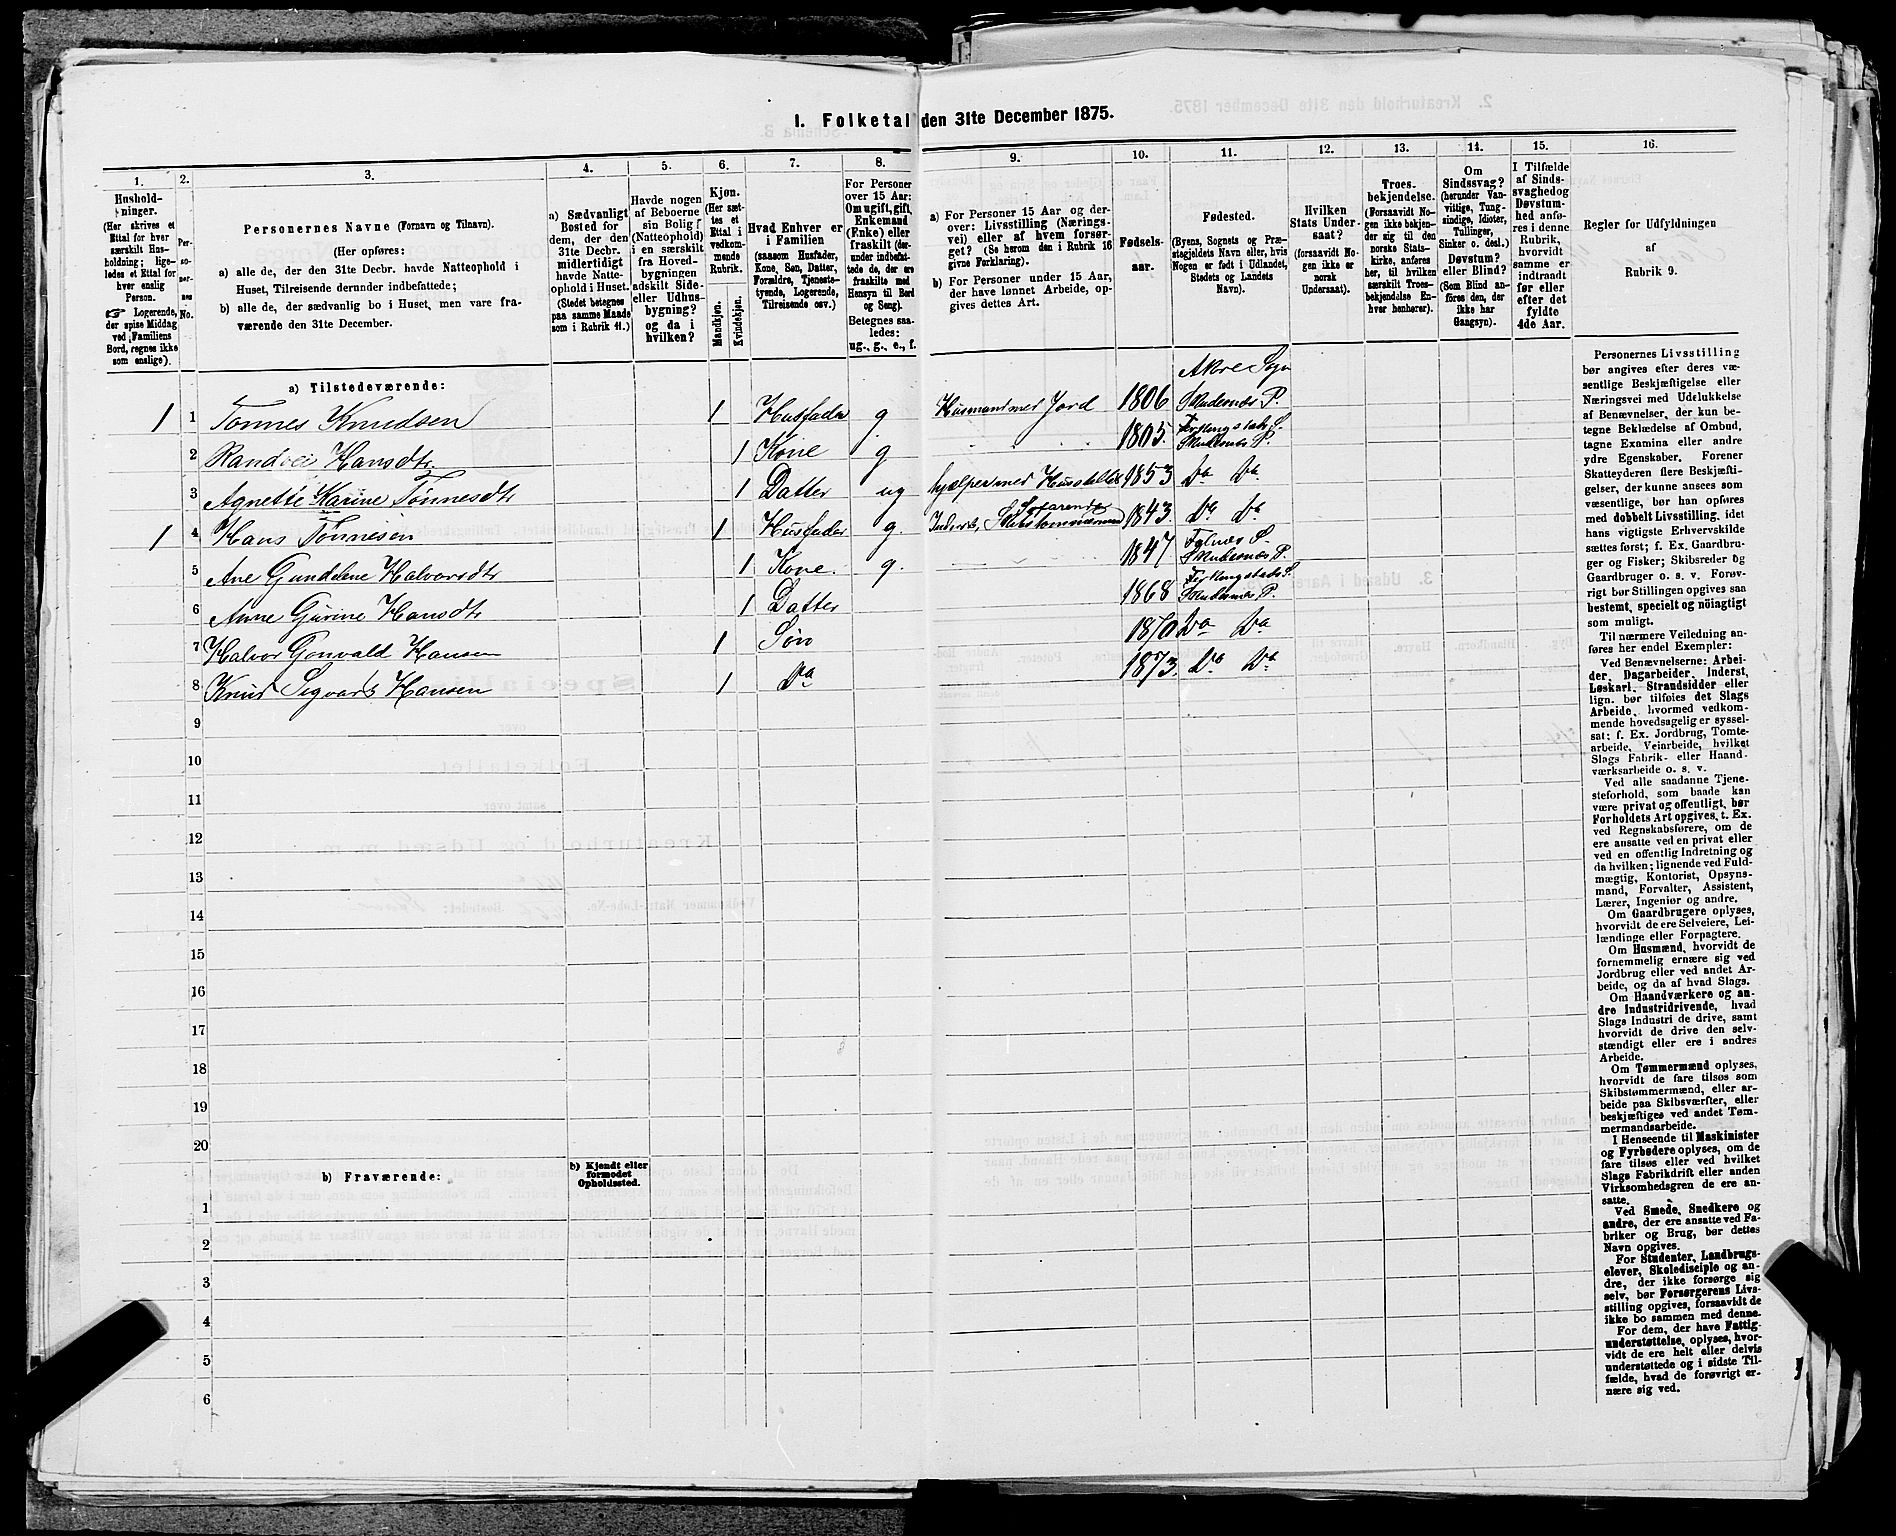 1. Folketal den 31te December 1875.
1. 2. 3. 4. 5. 6. 7. 8. 9. 10. 11. 12. 13. 14. 15. 16.
Husholdninger.
(Her skrives et
Ettal for hver
særskilt Hus-
holdning; lige-
ledes et Ettal for
hver enslig
Person.
☞ Logerende,
der spise Middag
ved Familiens
Bord, regnes ikke
som enslige).
Per-
so-
per-
nes
No.
Personernes Navne (Fornavn og Tilnavn).
(Her opføres:
a) alle de, der den 31te Decbr. havde Natteophold i
Huset, Tilreisende derunder indbefattede;
b) alle de, der sædvanlig bo i Huset, men vare fra-
værende den 31te December.
a) Sædvanligt
Bosted for
dem, der den
31te Decbr.
midlertidigt
havde Natte-
ophold i Huset.
(Stedet betegnes
paa samme Maade
som i Rubrik 11.)
Havde nogen
af Beboerne
sin Bolig
(Natteophold)
i en særskilt
fra Hoved-
bygningen
adskilt Side-
eller Udhus-
bygning?
og da i
hvilken?
Kjøn.
(Her sæt-
tes et
Ettal i
vedkom-
mende
Rubrik.
Mandkjøn.
Kvindekjøn.
Hvad Enhver er
i Familien
(saasom Husfader,
Kone, Søn, Datter,
Forældre, Tjeneste-
tyende, Logerende,
Tilreisende osv.)
For Personer
over 15 Aar:
Om ugift, gift,
Enkemand
(Enke) eller
fraskilt (der-
under indbefat-
tede de, der ere
fraskilte med
Hensyn til Bord
og Seng).
Betegnes saa-
ledes:
ug., g., e., f.
a) For Personer 15 Aar og der-
over: Livsstilling (Nærings-
vei) eller af hvem forsør-
get? (Se herom den i Rubrik 16
givne Forklaring).
b) For Personer under 15 Aar,
der have lønnet Arbeide, op-
gives dettes Art.
Fødsels-
aar.
Fødested.
(Byens, Sognets og Præ-
stegjeldets Navn eller, hvis
Nogen er født i Udlandet,
Stedets og Landets
Navn).
Hvilken
Stats Under-
saat?
(forsaavidt No-
gen ikke er
norsk
Undersaat).
Troes-
bekjendelse.
(Forsaavidt No-
gen ikke bekjen-
der sig til den
norske Stats-
kirke, anføres
her, til hvilken
særskilt Troes-
bekjendelse En-
hver henhører).
Om
Sindssvag?
(herunder Van-
vittige, Tung-
sindige, Idioter,
Tullinger,
Sinker o. desl.)
Døvstum?
eller Blind?
(Som Blind an-
føres den, der
ikke har
Gangsyn).
I Tilfælde
af Sinds-
svaghed og
Døvstum-
hed anfø-
res i denne
Rubrik,
hvorvidt
samme er
indtraadt
før eller
efter det
fyldte
4de Aar.
Regler for Udfyldningen
af
Rubrik 9.
a) Tilstedeværende:
1 1 Tonnes Knudsen 1 Husfader g Husmand med Jord 1806 Akre Sogn Skudesnæs P.
2 Randvei Hansdtr. 1 Kone g 1805. Skudesnæs P.
3 Agnette Karine Tønnesdtr 1 Datter ug hjælper med Husstellet 1853 Do Do
1 4 Hans Tønnesen 1 Husfader g. Inderst, Skibstømmermand 1843. Do Do
5 Ane Gundelene Halvorsdtr 1 Kone. g. 1847 Skudesnæs P.
6 Anne Gurine Hansdtr 1 Datter 1868 Skudesnæs P.
7 Halvor Gonvald Hansen 1 Søn 1870 Do Do
8 Knud Sigvart Hansen 1 Do 1873. Do Do
9
10
11
12
13
14
15
16
17
18
19
20
b) Fraværende:
b) Kjendt eller
formodet
Opholdssted.
1
2
3
4
5
6
Personernes Livsstilling
bør angives efter deres væ-
sentlige Beskjæftigelse eller
Næringsvei med Udelukkelse
af Benævnelser, der kun be-
tegne Beklædelse af Ombud,
tagne Examina eller andre
ydre Egenskaber. Forener
Skatteyderen flere Beskjæfti-
gelser, der kunne ansees som
væsentlige, bør han opføres
med dobbelt Livsstilling, idet
hans vigtigste Erhvervskilde
sættes først; f. Ex. Gaardbru-
ger og Fisker; Skibsreder og
Gaardbruger o. s. v. Forøv-
rigt bør Stillingen opgives saa
bestemt, specielt og nöiagtigt
som muligt.
Til nærmere Veiledning an-
føres her endel Exempler:
Ved Benævnelserne: Arbei-
der, Dagarbeider, Inderst,
Løskarl, Strandsidder eller
lign. bør tilføies det Slags
Arbeide, hvormed vedkom-
mende hovedsagelig er syssel-
sat; f. Ex. Jordbrug, Tomte-
arbeide, Veiarbeide, hvilket
Slags Fabrik- eller Haand-
værksarbeide o. s. v.
Ved alle saadanne Tjene-
steforhold, som baade kan
være privat og offentligt, bør
Forholdets Art opgives, t. Ex.
ved Regnskabsførere, om de
ere ansatte ved en privat eller
ved en offentlig Indretning og
da hvilken; lignende ved Fuld-
mægtig, Kontorist, Opsyns-
mand, Forvalter, Assistent,
Lærer, Ingeniør og andre.
Om Gaardbrugere oplyses,
hvorvidt de ere Selveiere, Lei-
lændinge eller Forpagtere.
Om Husmænd, hvorvidt de
fornemmelig ernære sig ved
Jordbrug eller ved andet Ar-
beide, og da af hvad Slags.
Om Haandværkere og an-
dre Industridrivende, hvad
Slags Industri de drive, samt
hvorvidt de drive den selv-
stændigt eller ere i andres
Arbeide.
Om Tømmermænd oplyses,
hvorvidt de fare tilsøs som
Skibstømmermænd, eller ar-
beide paa Skibsværfter, eller
beskjæftiges ved andet Tøm-
mermandsarbeide.
I Henseende til Maskinister
og Fyrbødere oplyses, om de
fare tilsøs eller ved hvilket
Slags Fabrikdrift eller anden
Virksomhedsgren de ere an-
satte.
Ved Smede, Snedkere og
andre, der ere ansatte ved Fa-
briker og Brug, bør dettes
Navn opgives.
For Studenter, Landbrugs-
elever, Skoledisciple og an-
dre, der ikke forsørge sig
selv, bør Forsørgerens Livs-
stilling opgives, forsaavidt de
ikke bo sammen med denne.
For dem, der have Fattig-
understøttelse, oplyses, hvor-
vidt de ere helt eller delvis
understøttede og i sidste Til-
fælde, hvad de forøvrigt er-
nære sig ved.